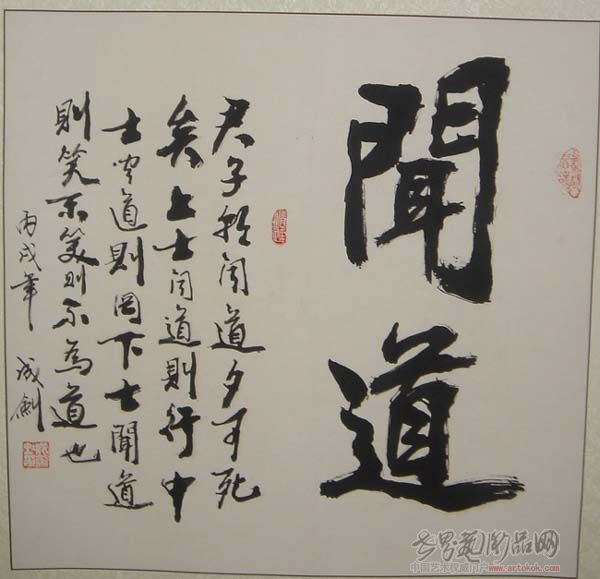 聞道
君子朝闻道夕可死
矣上士闻道则行中
士闻道則罔下士聞道
則笑不笑则不為道也
丙戌年 成劍
世界艺术品网
中国艺术权威门户 www.artokok.com